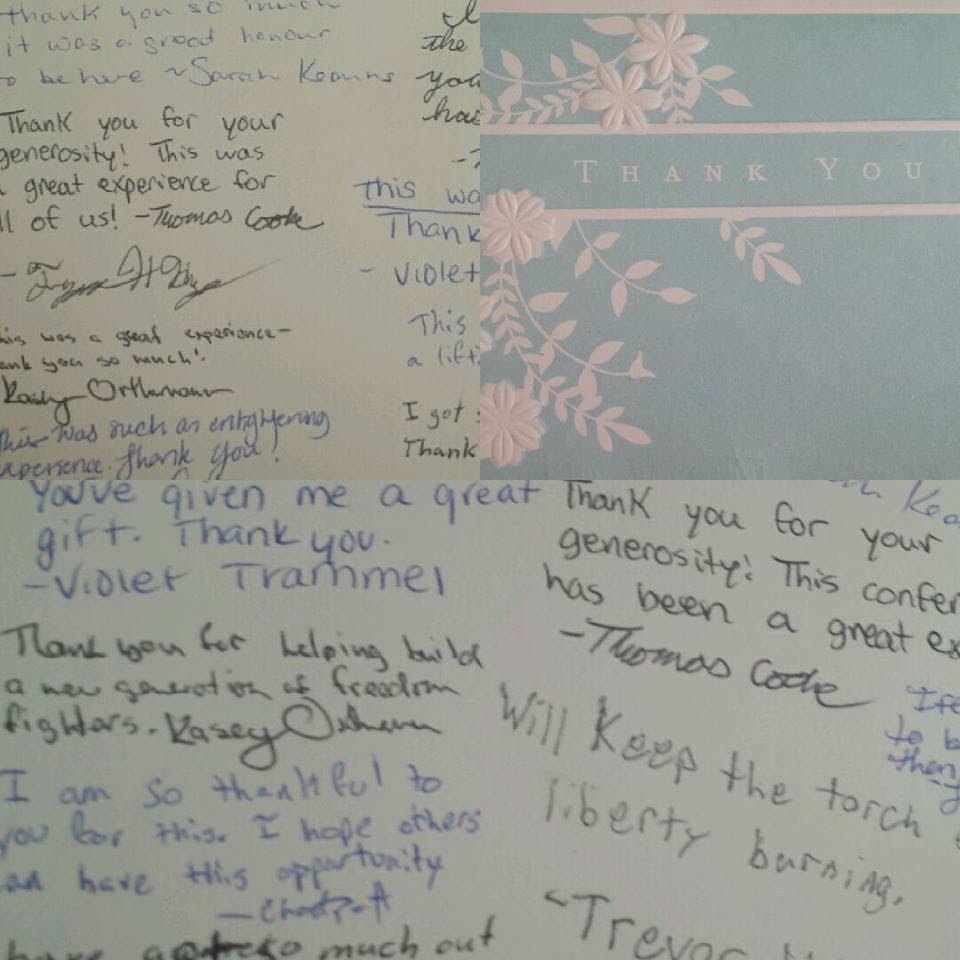 thank you so much
it was a great honour
to be here ~Sarah
Thank you for your
generosity! This was
great experience for
ll of us! -Thomas Cooke
his was a great experience-
ank you so much!
Kasey
This was such an enlightening
xperience. Thank you!
the
you
has
This wa
Thank
- Violet
This
a lift
I got
Thank
THANK YOU
You've given me a great
gift. Thank you.
-Violet Trammel
Thank you for helping build
a new generation of freedom
fighters. Kasey
I am so thankful to
you for this. I hope others
an have this opportunity
so much out
Thank you for your
generosity! This confer
has been a great ex
-Thomas Cooke
to b
then
Will Keep the torch
liberty burning.
~Trevor